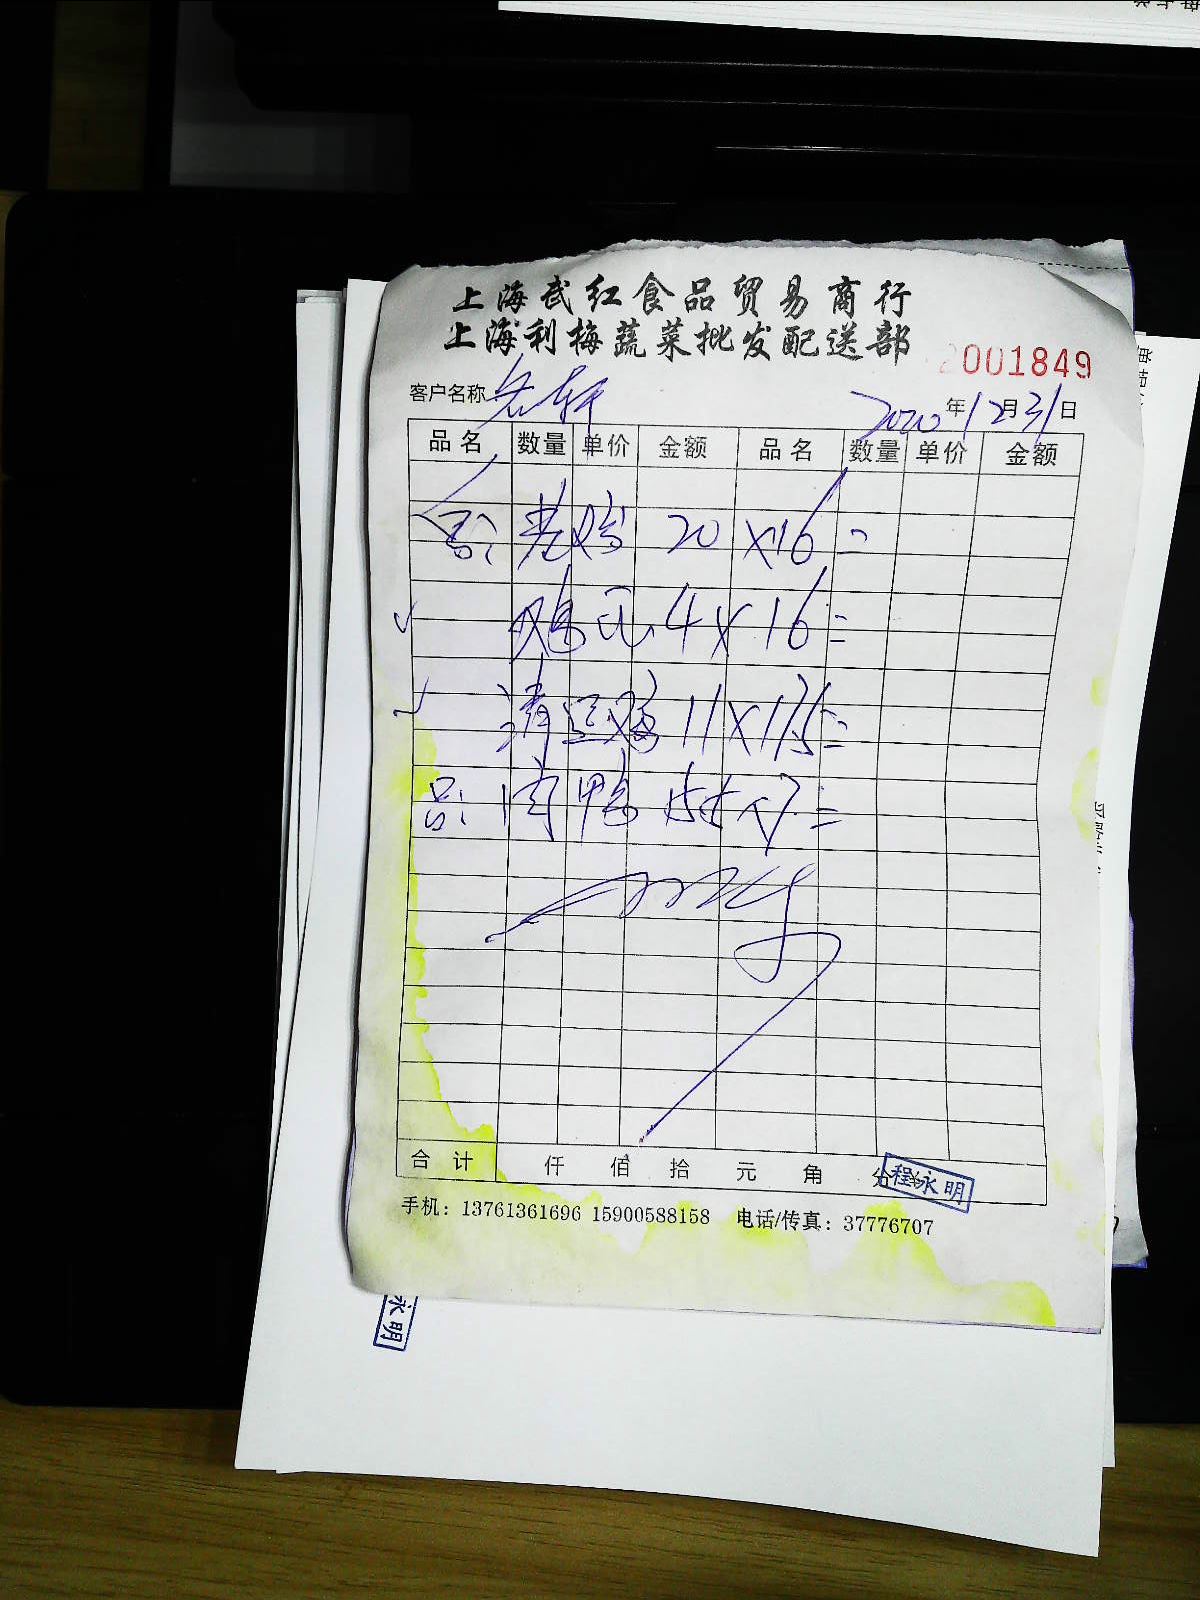 上海武红食品贸易商行
上海利梅蔬菜批发配送部
2001849
客户名称 2020年12月31日
品名 数量 单价 金额 品名 数量 单价 金额
老鸡 20×16=
4×16=
清远鸡 11×17.5=
肉鸭
合计 仟 佰 拾 元 角 分
程永明
手机：13761361696 15900588158 电话/传真：37776707
永明